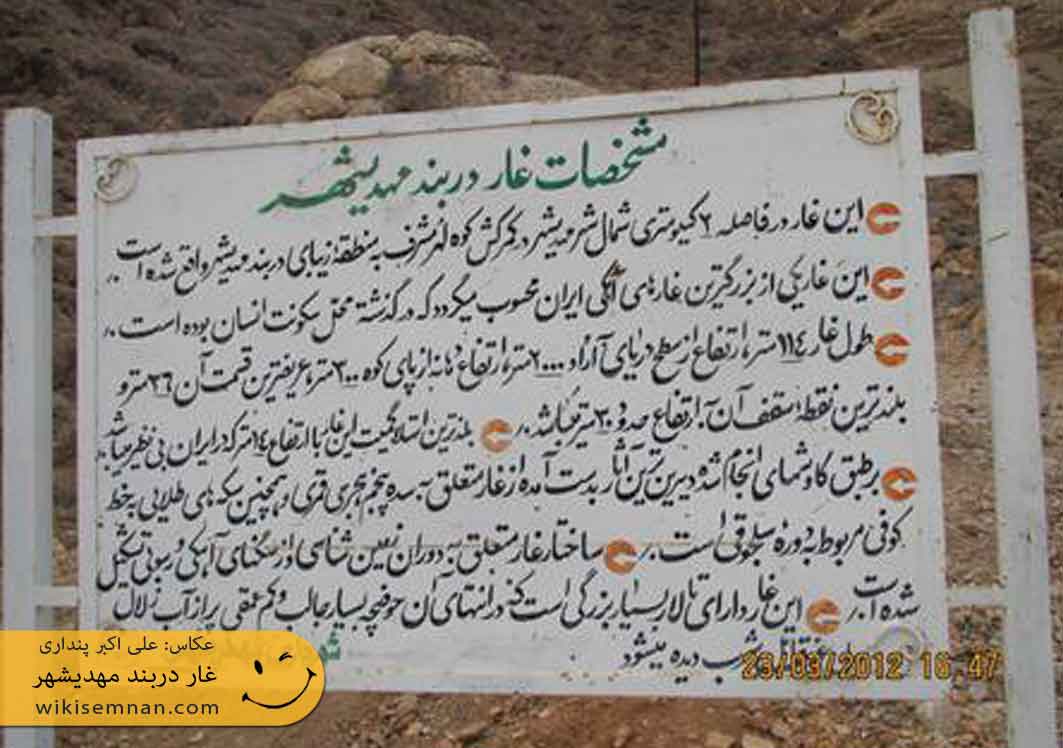 مشخصات غار دربند مهدیشهر
این غار در فاصله ۲ کیلومتری شمال شهر مهدیشهر در کمرکش کوه مشرف به منطقه زیبای دربند مهدیشهر واقع شده است.
این غار یکی از بزرگترین غارهای آهکی ایران محسوب میگردد که در گذشته محل سکونت انسان بوده است.
طول غار ۱۱٤ متر، ارتفاع از سطح دریای آزاد ۲۰۰۰ متر، ارتفاع دهانه از پای کوه ۳۰۰ متر، عریضترین قسمت آن ۳٦ متر و
بلندترین نقطه سقف آن به ارتفاع حدود ۳۰ متر میباشد. بلندترین استلاگمیت این غار با ارتفاع ۱٤ متر که در ایران بی نظیر میباشد.
بر طبق کاوشهای انجام شده دیرین ترین آثار بدست آمده از غار متعلق به سده پنجم هجری قمری و همچنین سکه های طلایی به خط
کوفی مربوط به دوره سلجوقی است. ساختار غار متعلق به دوران زمین شناسی از سنگهای آهکی رسوبی تشکیل
شده است. این غار دارای تالار بسیار بزرگی است که در انتهای آن حوضچه بسیار جالب و کم عمقی پر از آب زلال
دیده میشود
23/09/2012 16:47
عکاس: علی اکبر پنداری
غار دربند مهدیشهر
wikisemnan.com